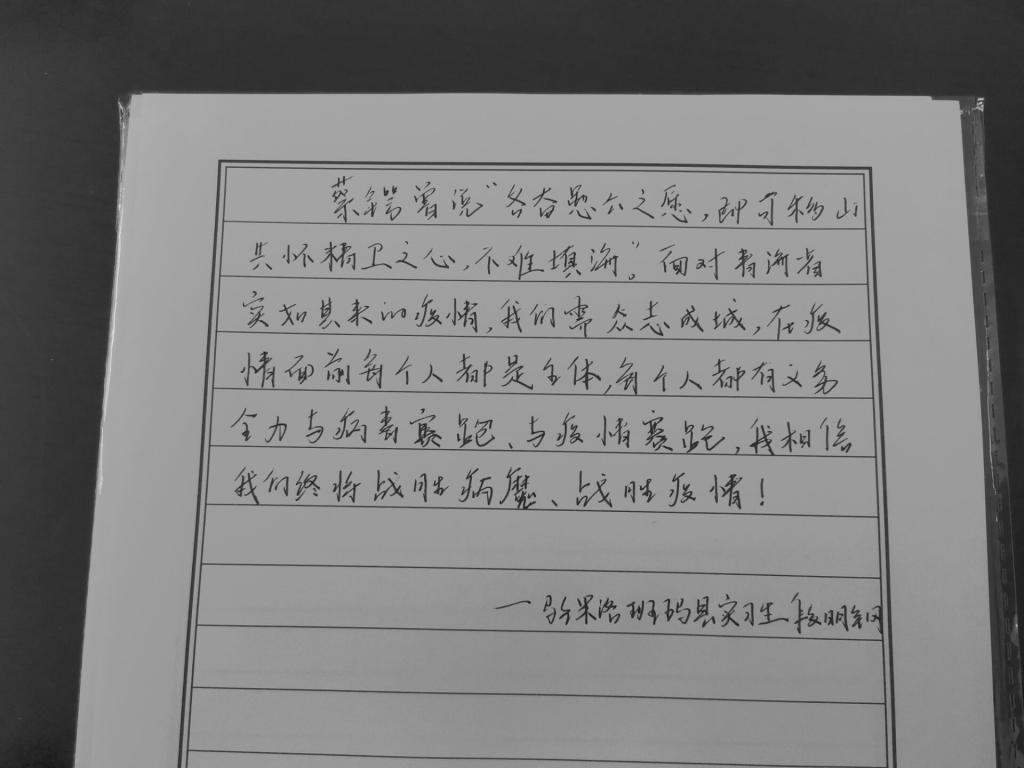 蔡锷曾说“各奋愚公之愿，即可移山
共怀精卫之心，不难填海。”面对青海省
突如其来的疫情，我们需众志成城，在疫
情面前每个人都是主体，每个人都有义务
全力与病毒赛跑、与疫情赛跑，我相信
我们终将战胜病魔、战胜疫情！
—驻果洛班玛县实习生 段明钢